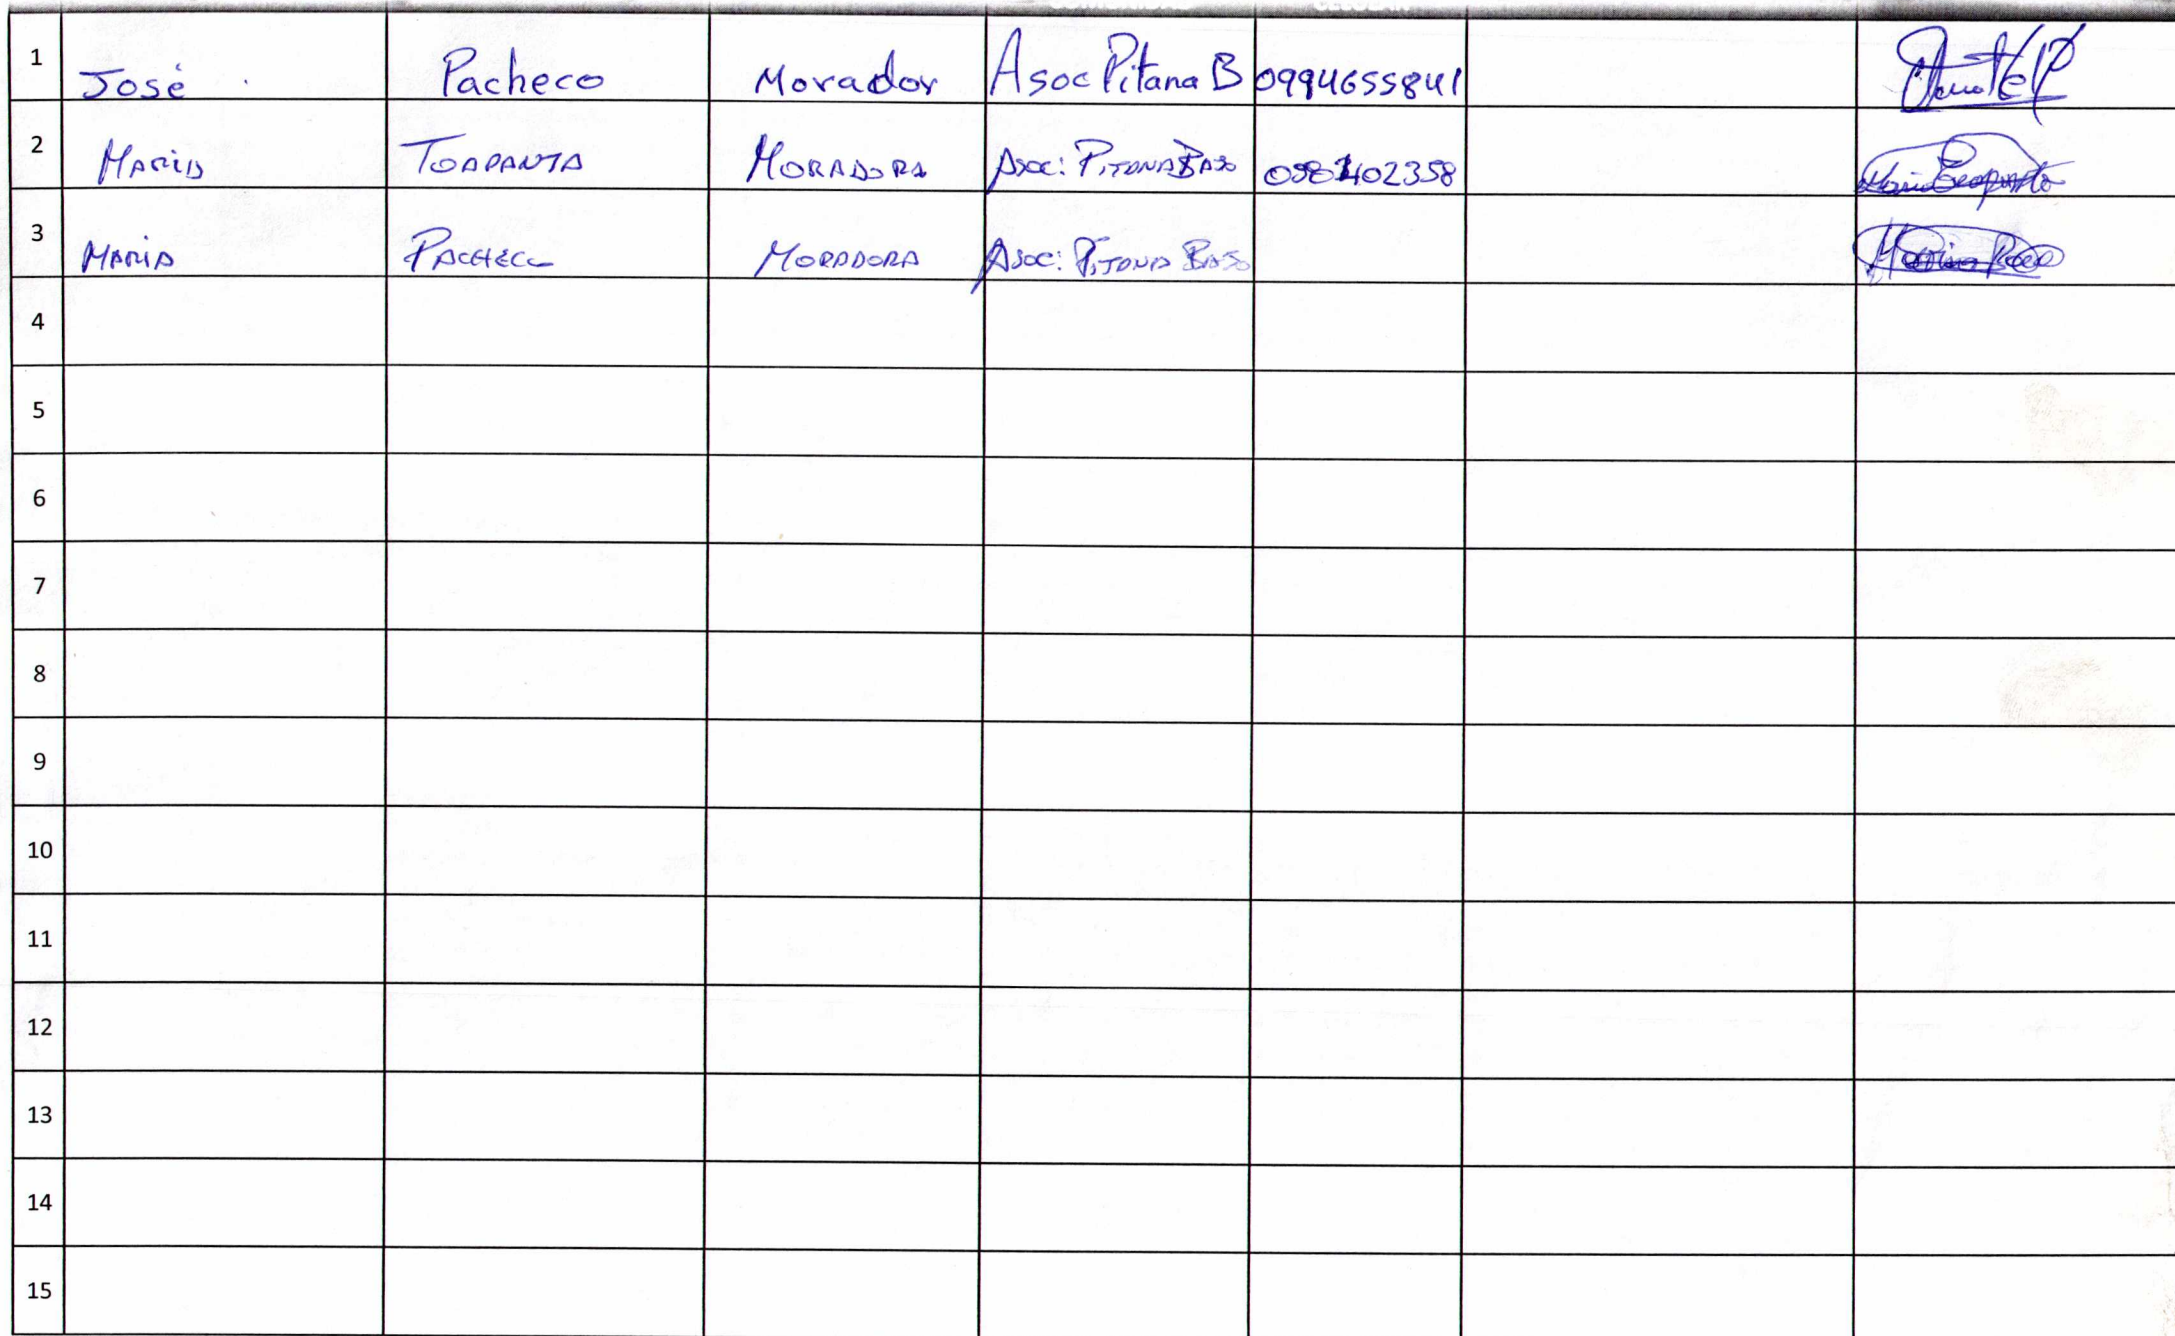 1 José Pacheco Morador Asoc Pitana B 0994655841
2 MARIA TOAPANTA MORADORA Asoc: PITANA BAJO
3 MARIA PACHECO MORADORA Asoc: PITANA BAJO
4
5
6
7
8
9
10
11
12
13
14
15